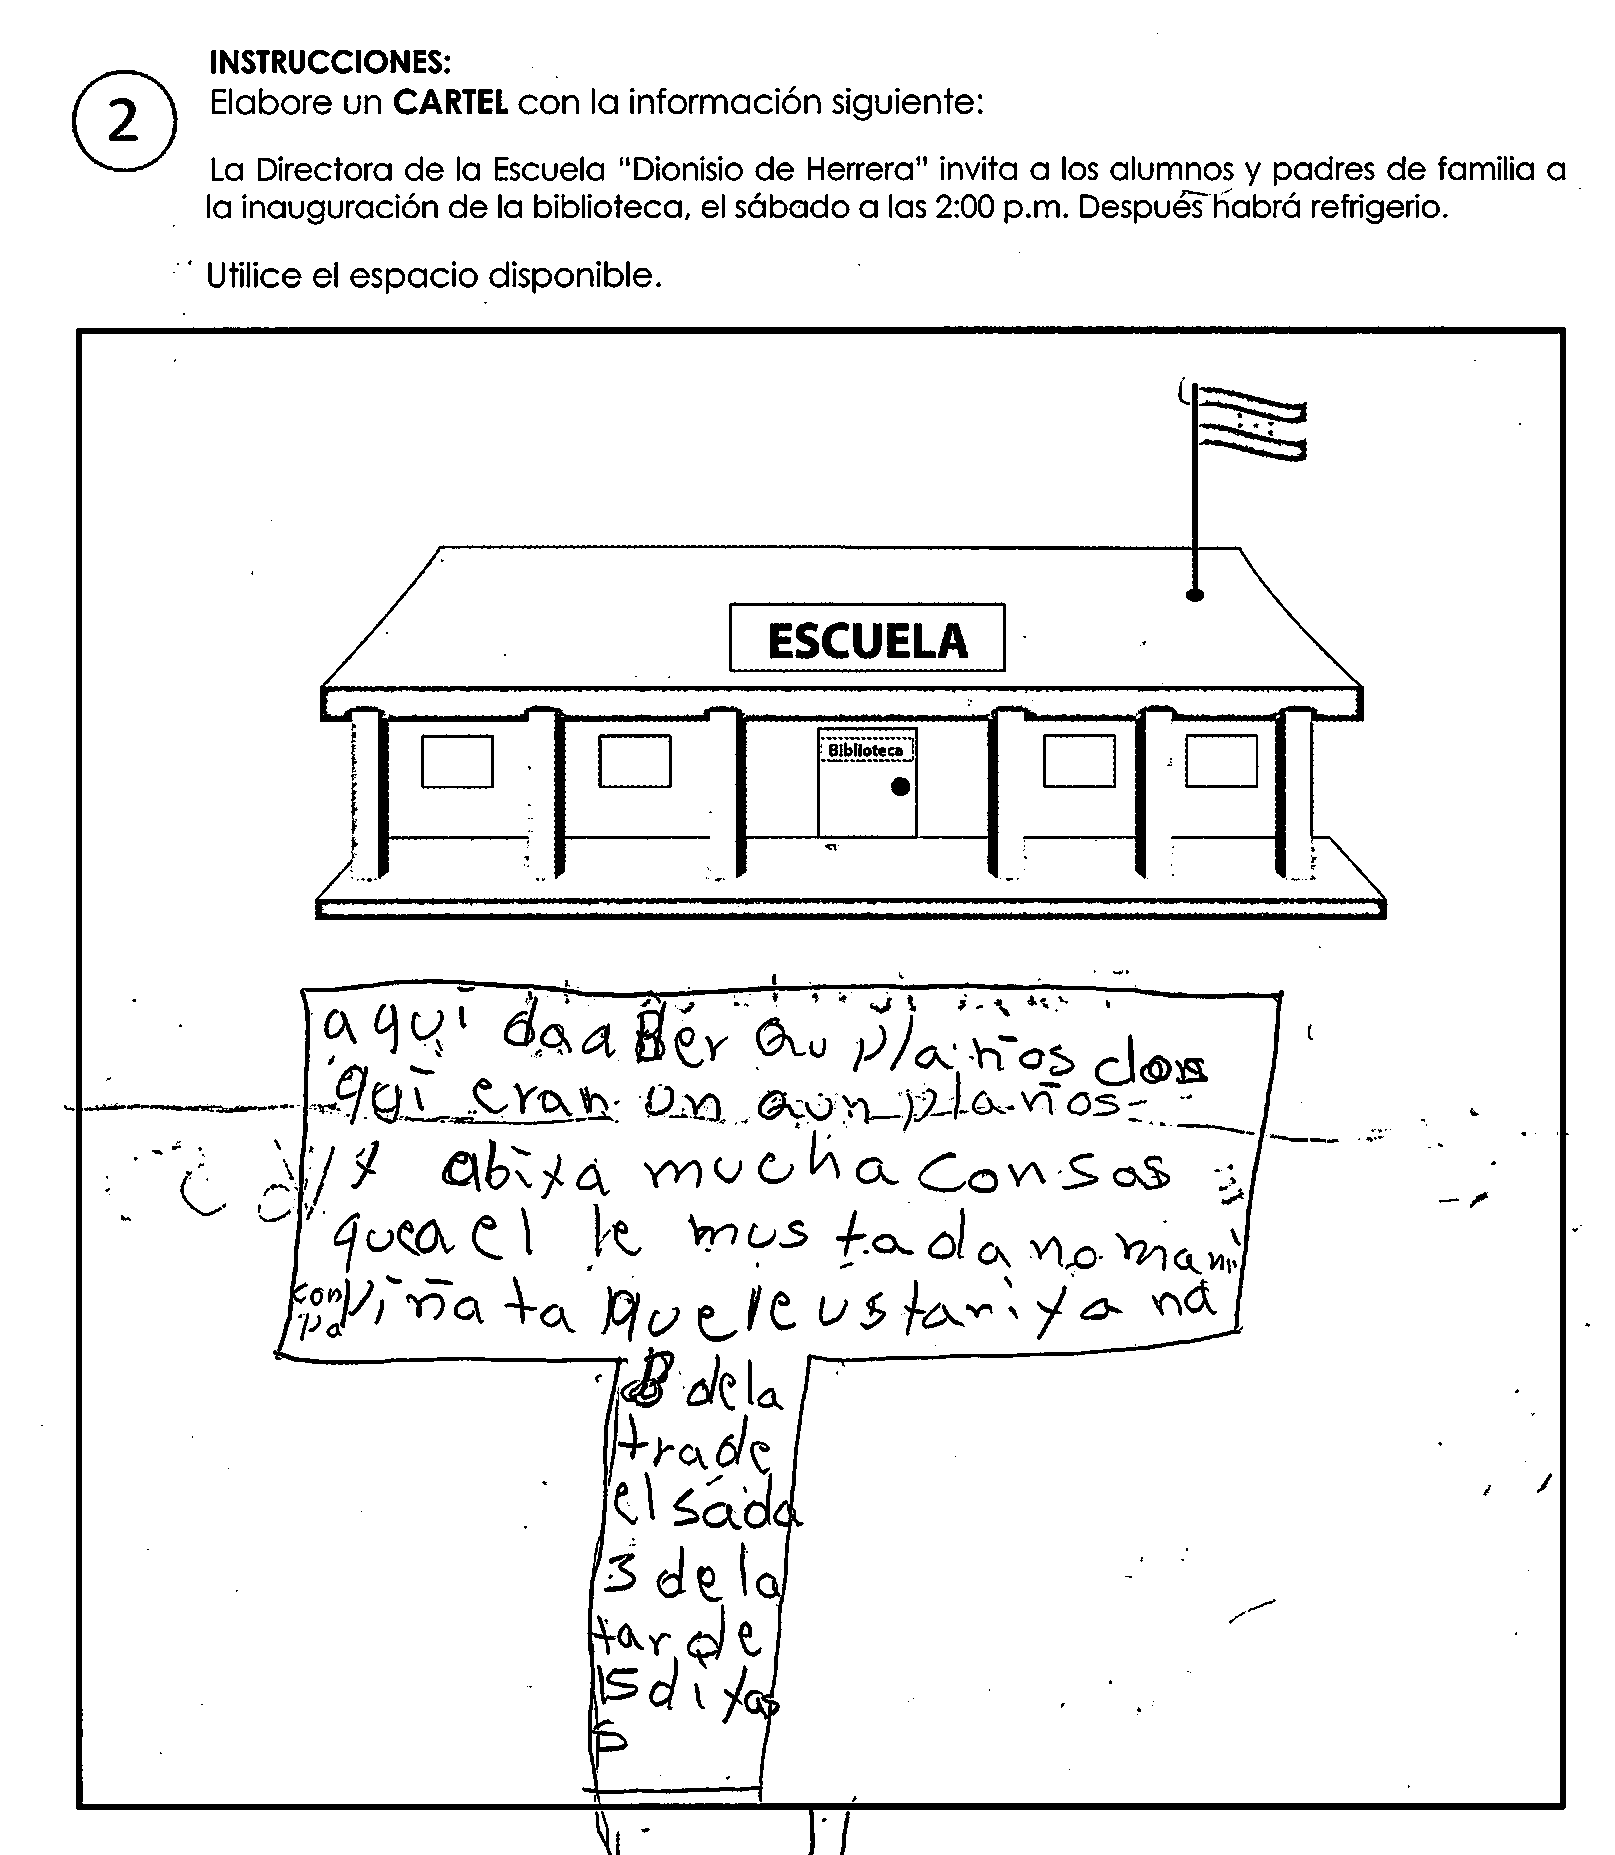 INSTRUCCIONES:
2
Elabore un CARTEL con la información siguiente:
La Directora de la Escuela "Dionisio de Herrera" invita a los alumnos y padres de familia a
la inauguración de la biblioteca, el sábado a las 2:00 p.m. Después habrá refrigerio.
Utilice el espacio disponible.
ESCUELA
Biblioteca
aquí da a Ber qu plaños
qui eran un qunplaños
y abixa mucha consas
quea el le mustada no
con piñata que le ustarixa na
dela
trade
el sáda
3 de la
tarde
15 dixas